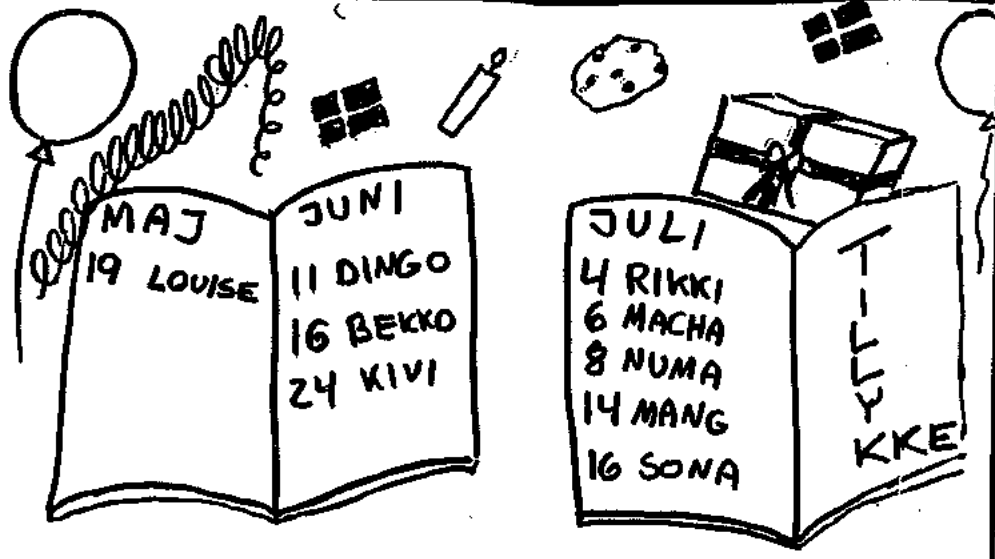 MAJ
19 LOUISE
JUNI
11 DINGO
16 BEKKO
24 KIVI
JULI
4 RIKKI
6 MACHA
8 NUMA
14 MANG
16 SONA
TILLYKKE